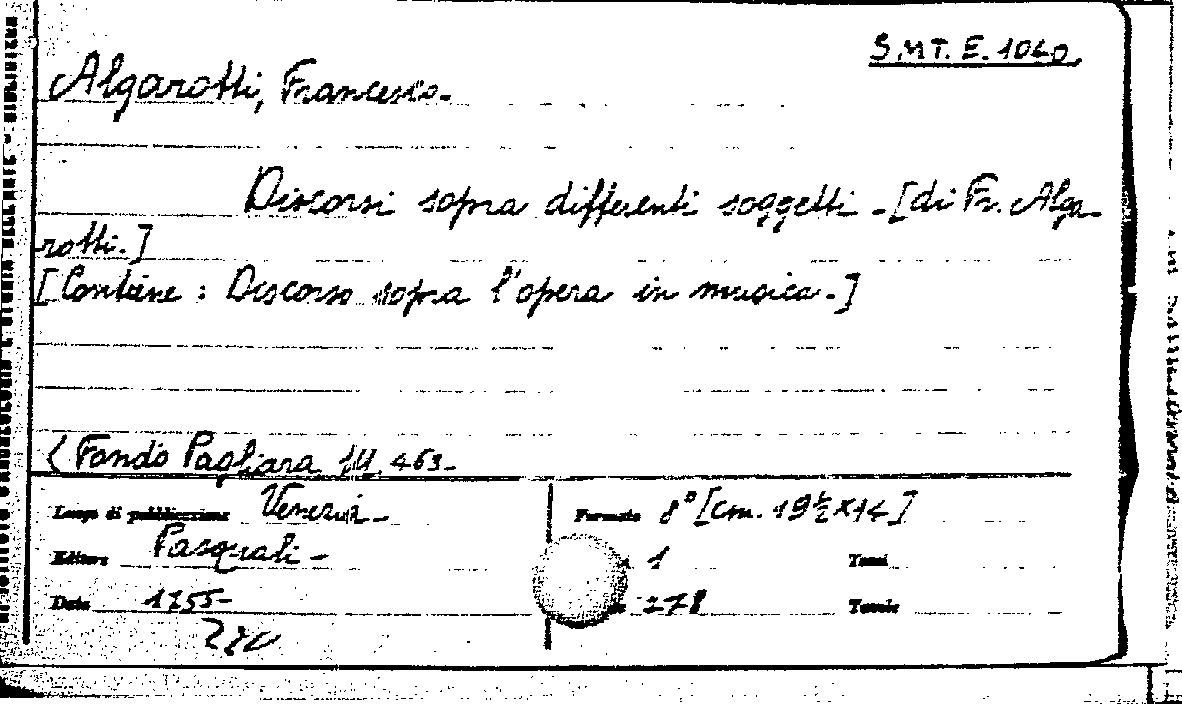 S.M.T. E. 1040.
Algarotti, Francesco.
Discorsi sopra differenti soggetti. - [di Fr. Alga-
rotti.]
[Contiene: Discorso sopra l'opera in musica.]
Fondo Pagliara 463-
Luogo di pubblicazione Venezia-
Formato 8° [cm. 19½×14]
Editore Pasquali-
1
Tomi
Data 1755-
278
Tavole